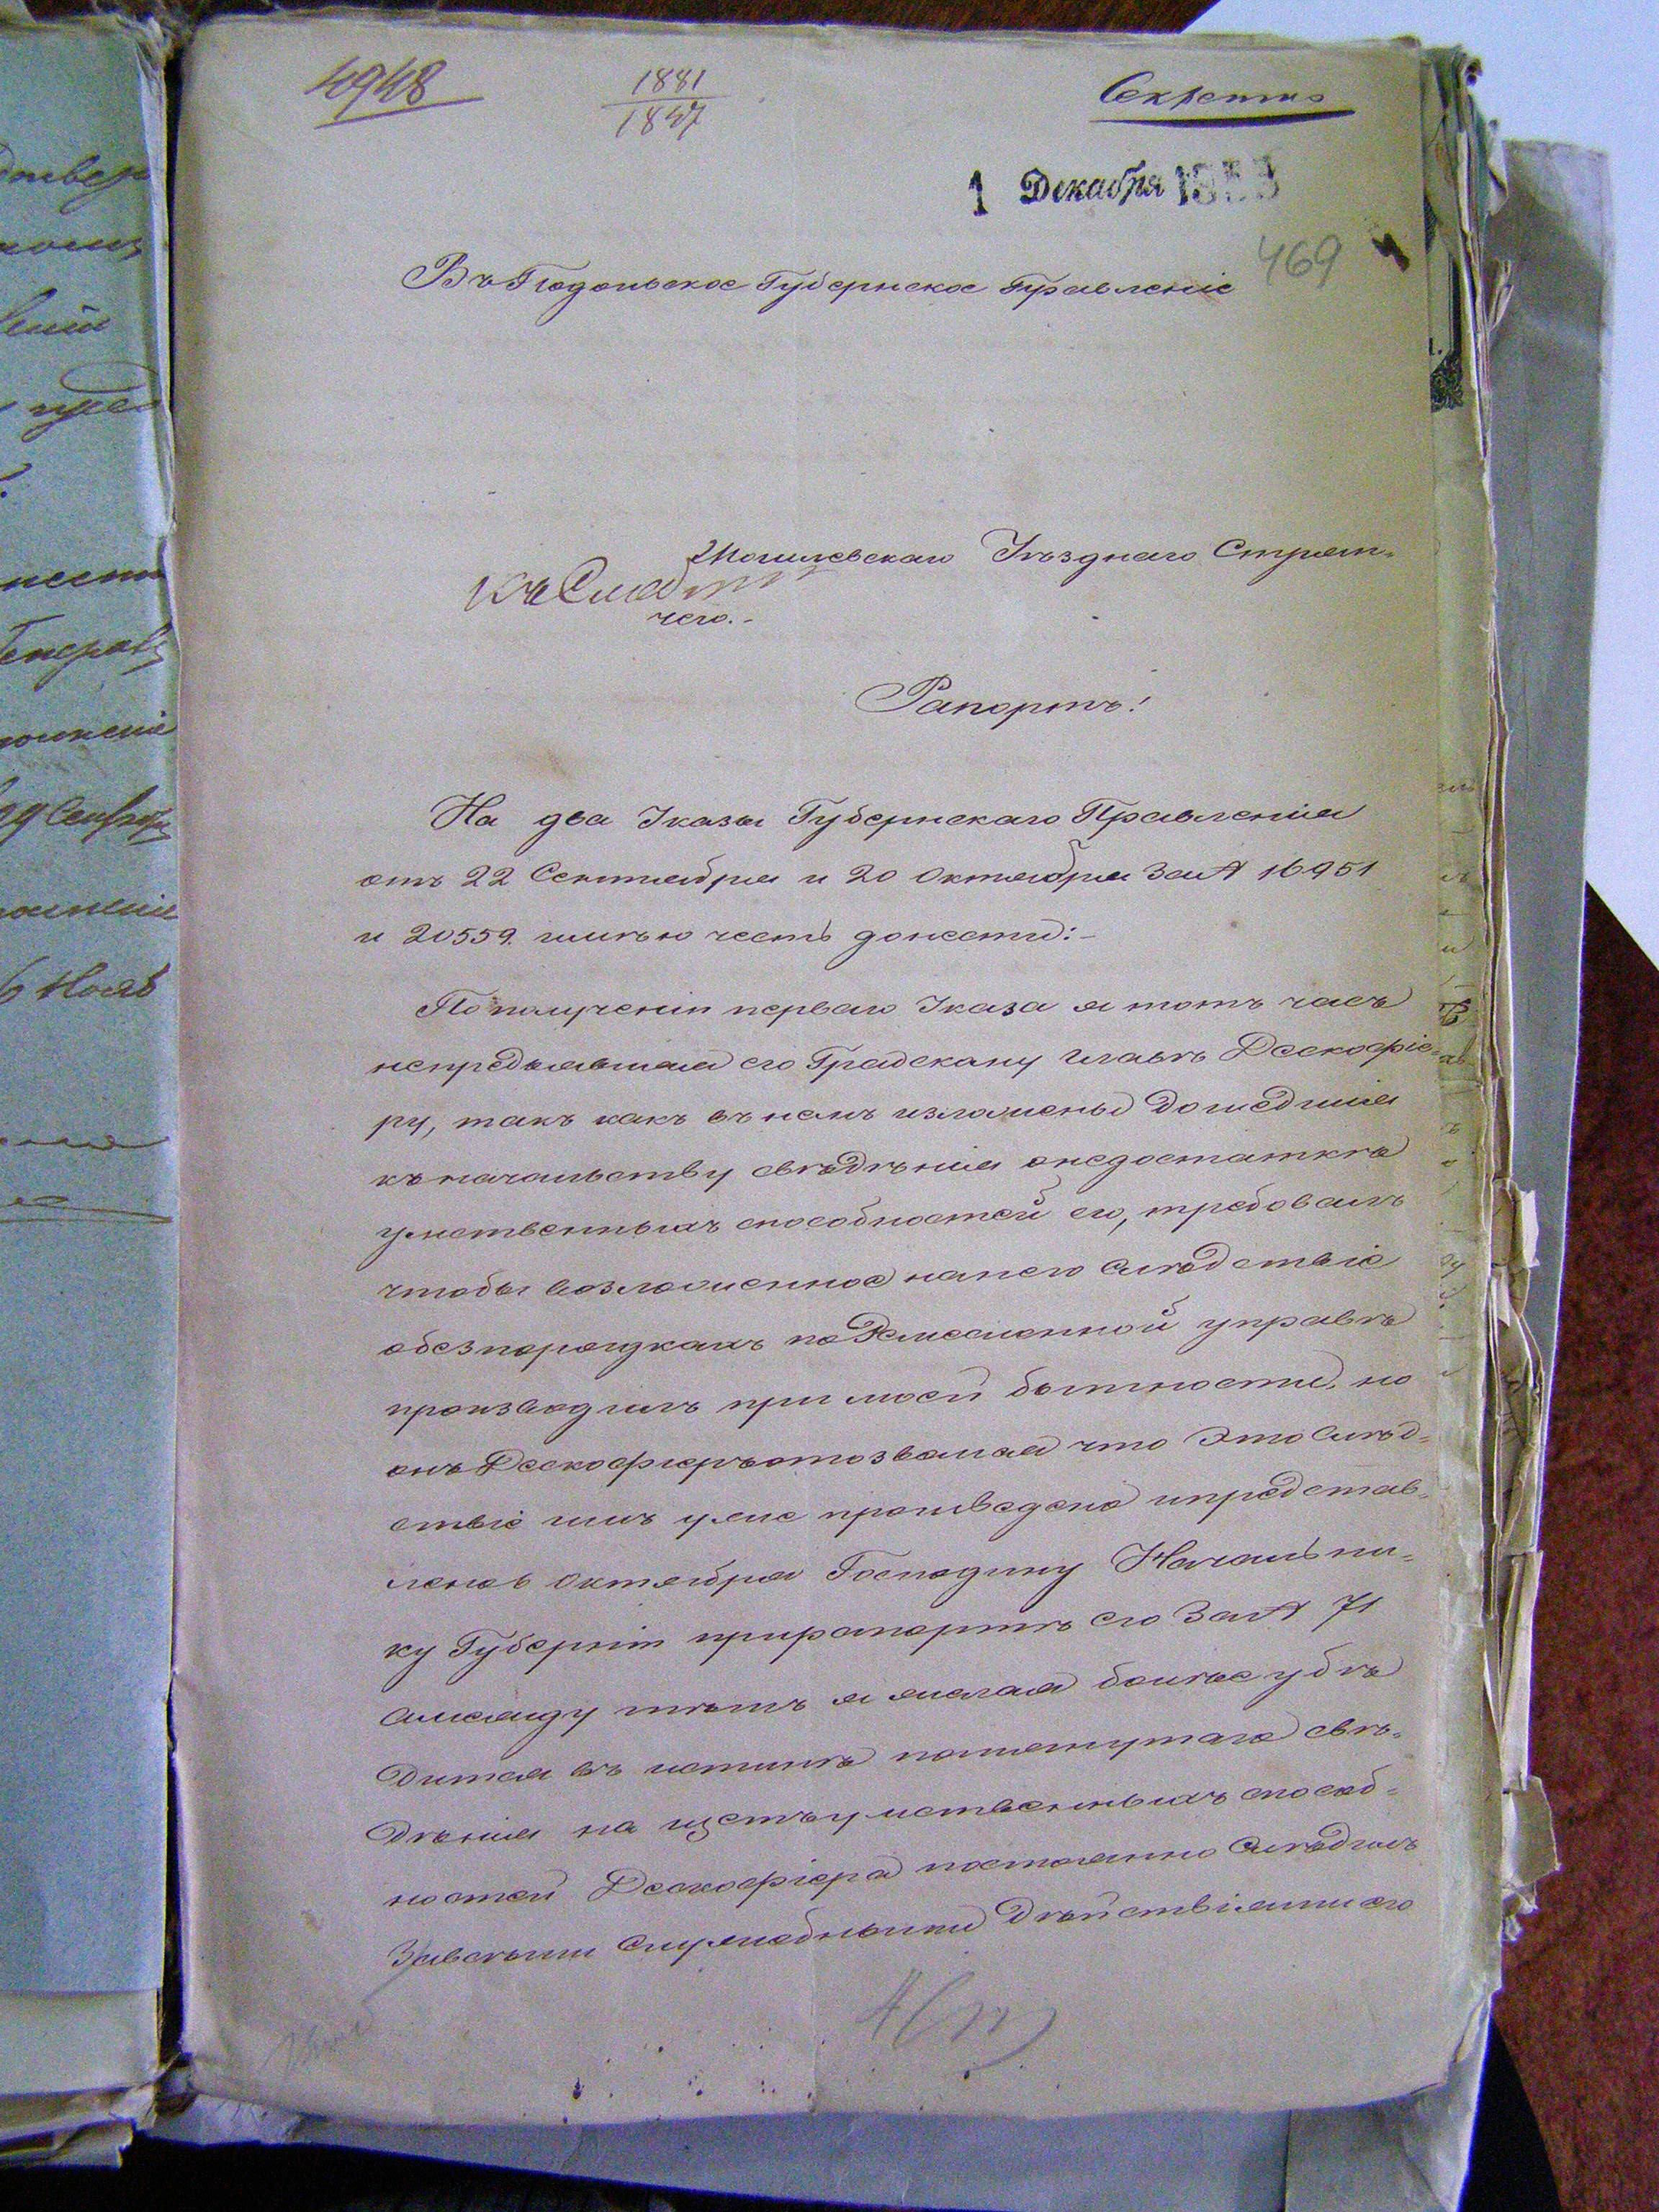 4948
1881
1847
Секретно
1 Декабря
469
Въ Подольское Губернское Правленіе
Могилевскаго Уѣзднаго Стряп-
чего.-
Рапортъ!
На два Указы Губернскаго Правленія
отъ 22 Сентября и 20 Октября За № 16951
и 20559. имѣю честь донести:-
По полученіи перваго Указа я тотъ часъ
непредъявляя его Градскому Главѣ Дескофіе-
ру, такъ какъ въ немъ изложены дошедшія
къ начальству свѣдѣнія о недостаткѣ
умственныхъ способностей его, требовалъ
чтобы возложенное на него Слѣдствіе
обезпорядкахъ по Ремесленной управѣ
производилъ при моей бытности, но
онъ Дескофіеръ отозвался что Это Слѣд-
ствіе имъ уже произведено и представ-
лено Октября Господину Начальни-
ку Губерніи при рапортѣ Его За № 71
Амежду тѣмъ я желая болѣе убѣ
дится въ истинѣ помянутаго свѣ-
дѣнія на щетъ умственныхъ способ-
ностей Дескофіера постоянно Слѣдилъ
За всѣми Служебными дѣйствіями его